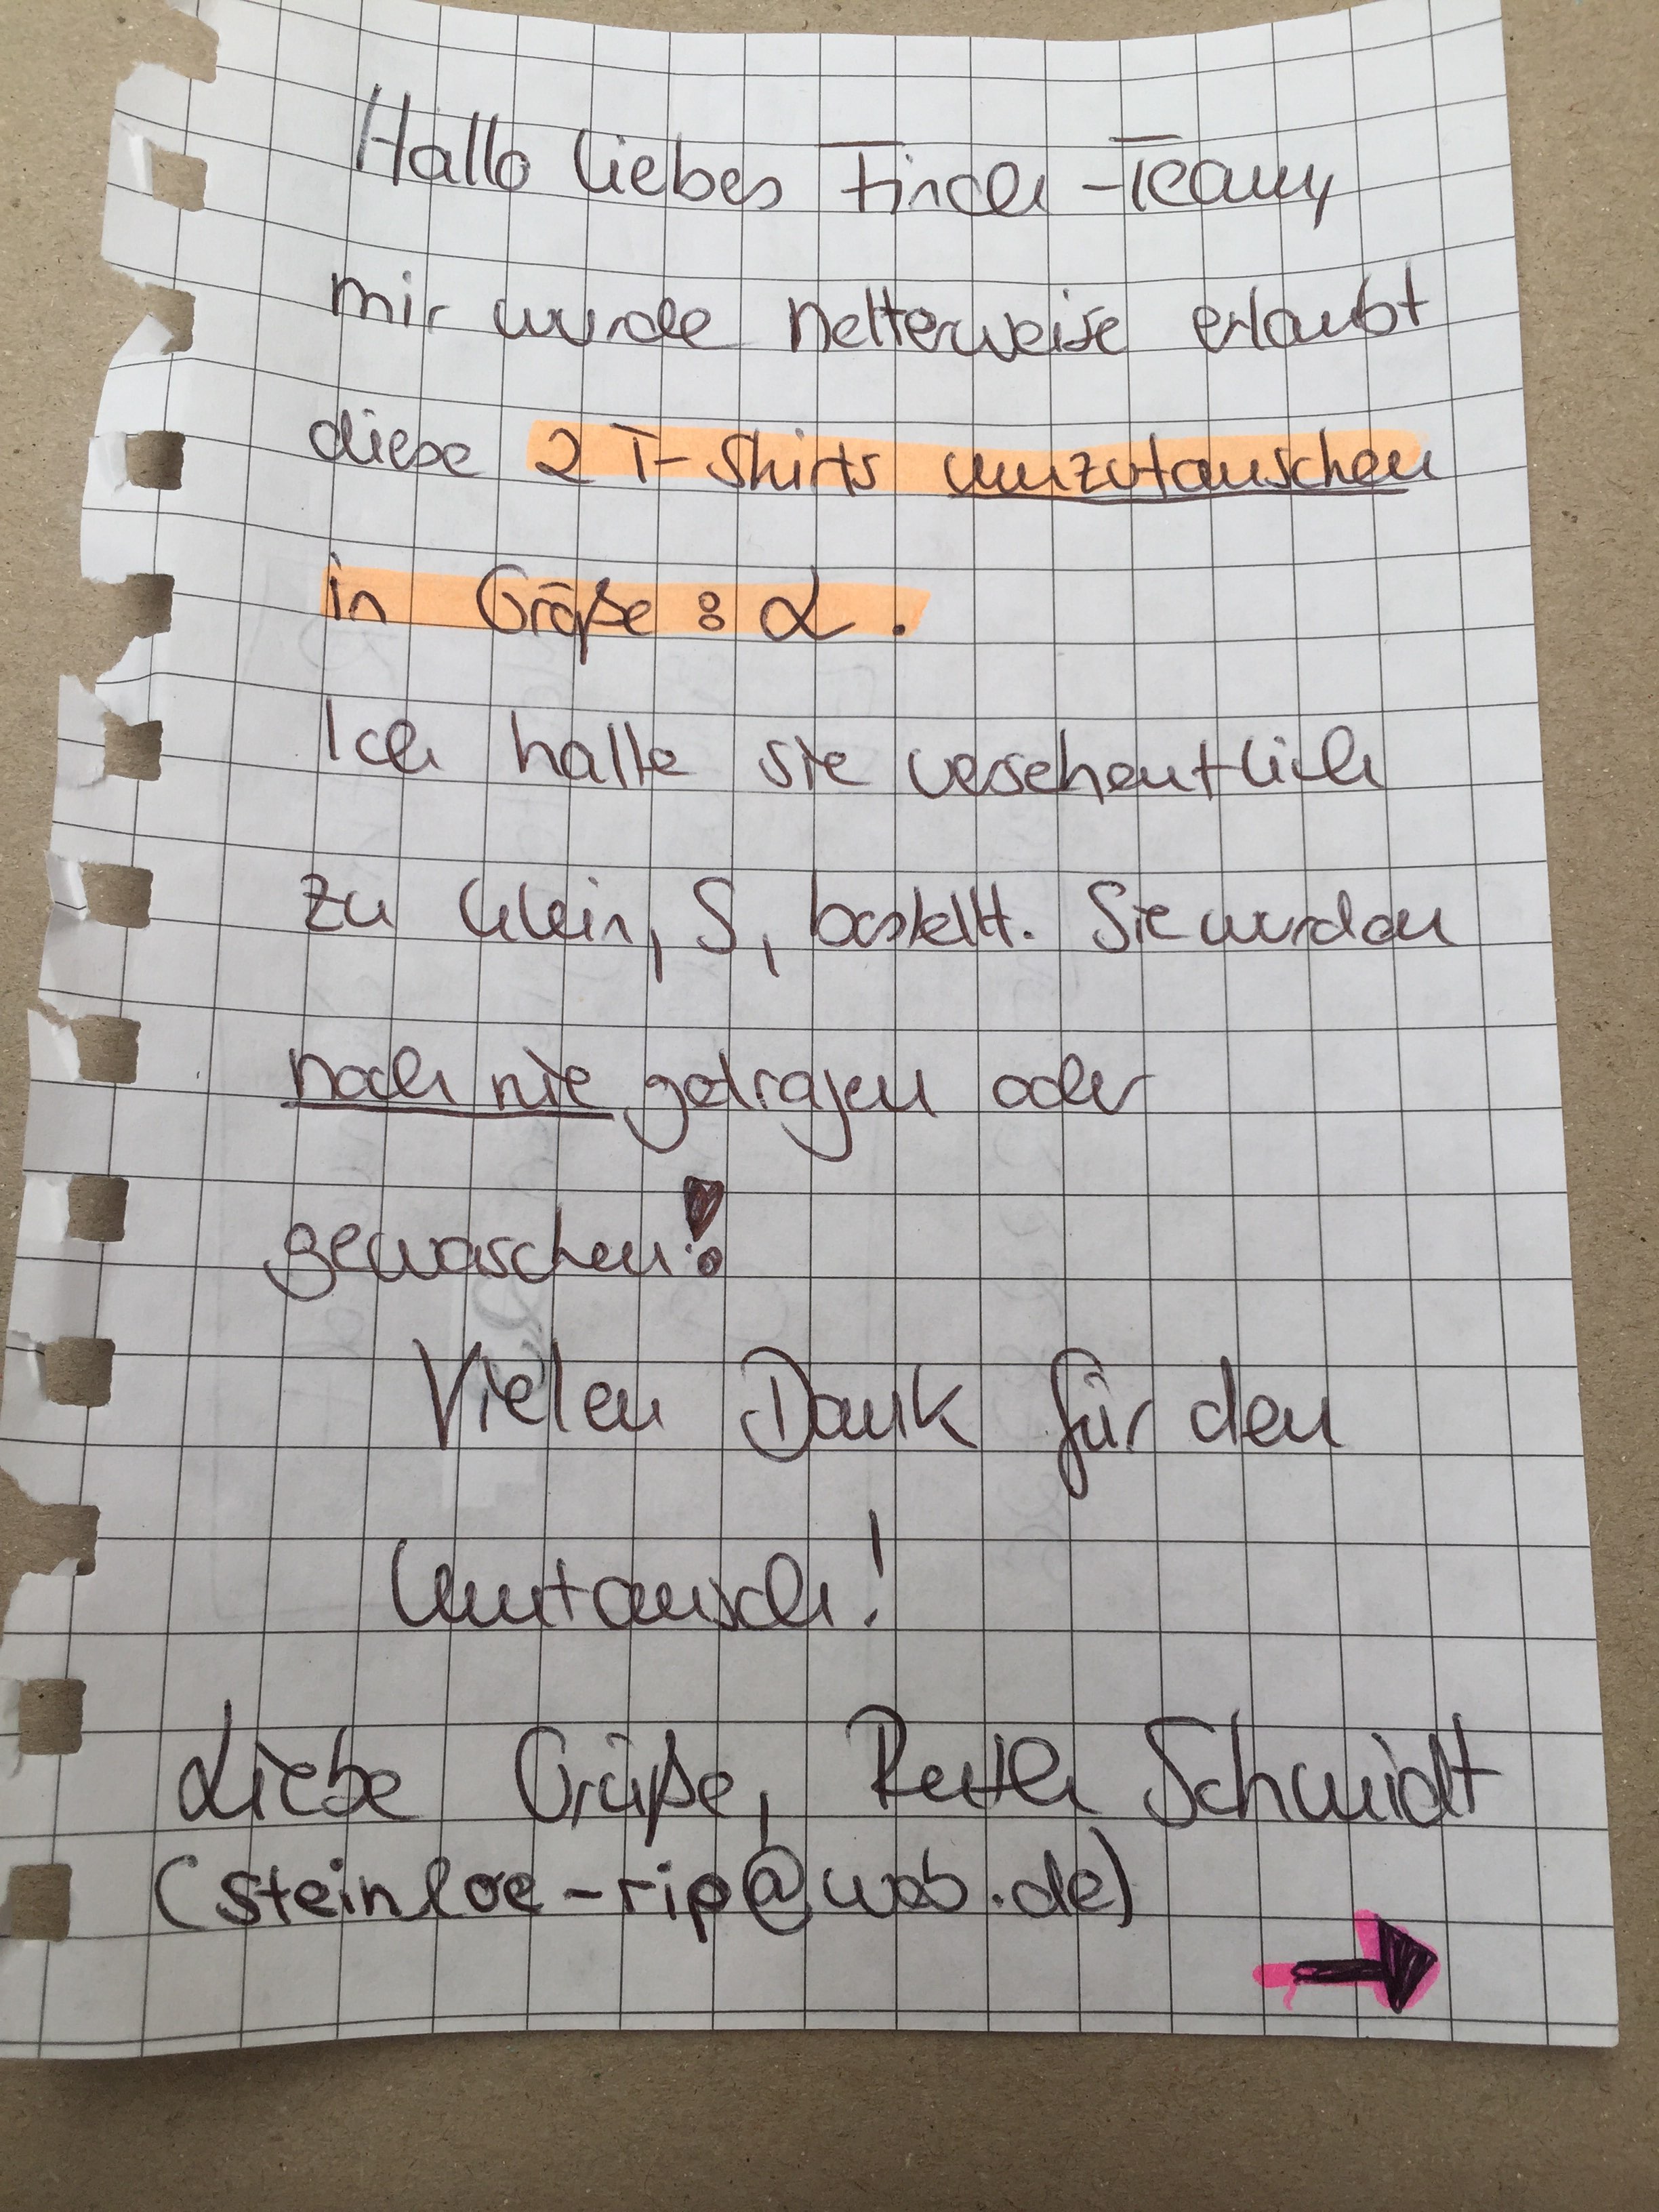 Hallo liebes Finch-Team,
mir wurde netterweise erlaubt
diese 2 T-Shirts umzutauschen
in Größe: L.
Ich hatte sie versehentlich
zu klein, S, bestellt. Sie wurden
noch nie getragen oder
gewaschen!
Vielen Dank für den
Umtausch!
Liebe Grüße, Ruth Schmidt
(steinloe-rip@web.de)
→